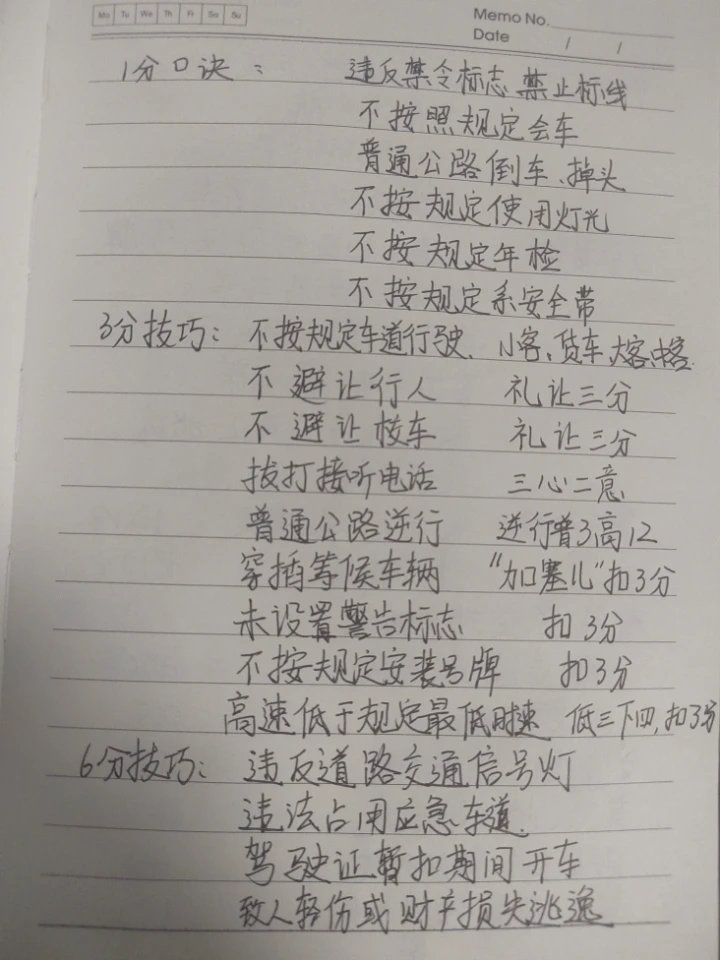 Mo Tu We Th Fr Sa Su
Memo No.
Date / /
1分口诀： 违反禁令标志、禁止标线
不按照规定会车
普通公路倒车、掉头
不按规定使用灯光
不按规定年检
不按规定系安全带
3分技巧： 不按规定车道行驶、小客、货车、大客、中客
不避让行人 礼让三分
不避让校车 礼让三分
拨打接听电话 三心二意
普通公路逆行 逆行普3高12
穿插等候车辆 “加塞儿”扣3分
未设置警告标志 扣3分
不按规定安装号牌 扣3分
高速低于规定最低时速 低三下四,扣3分
6分技巧： 违反道路交通信号灯
违法占用应急车道
驾驶证暂扣期间开车
致人轻伤或财产损失逃逸